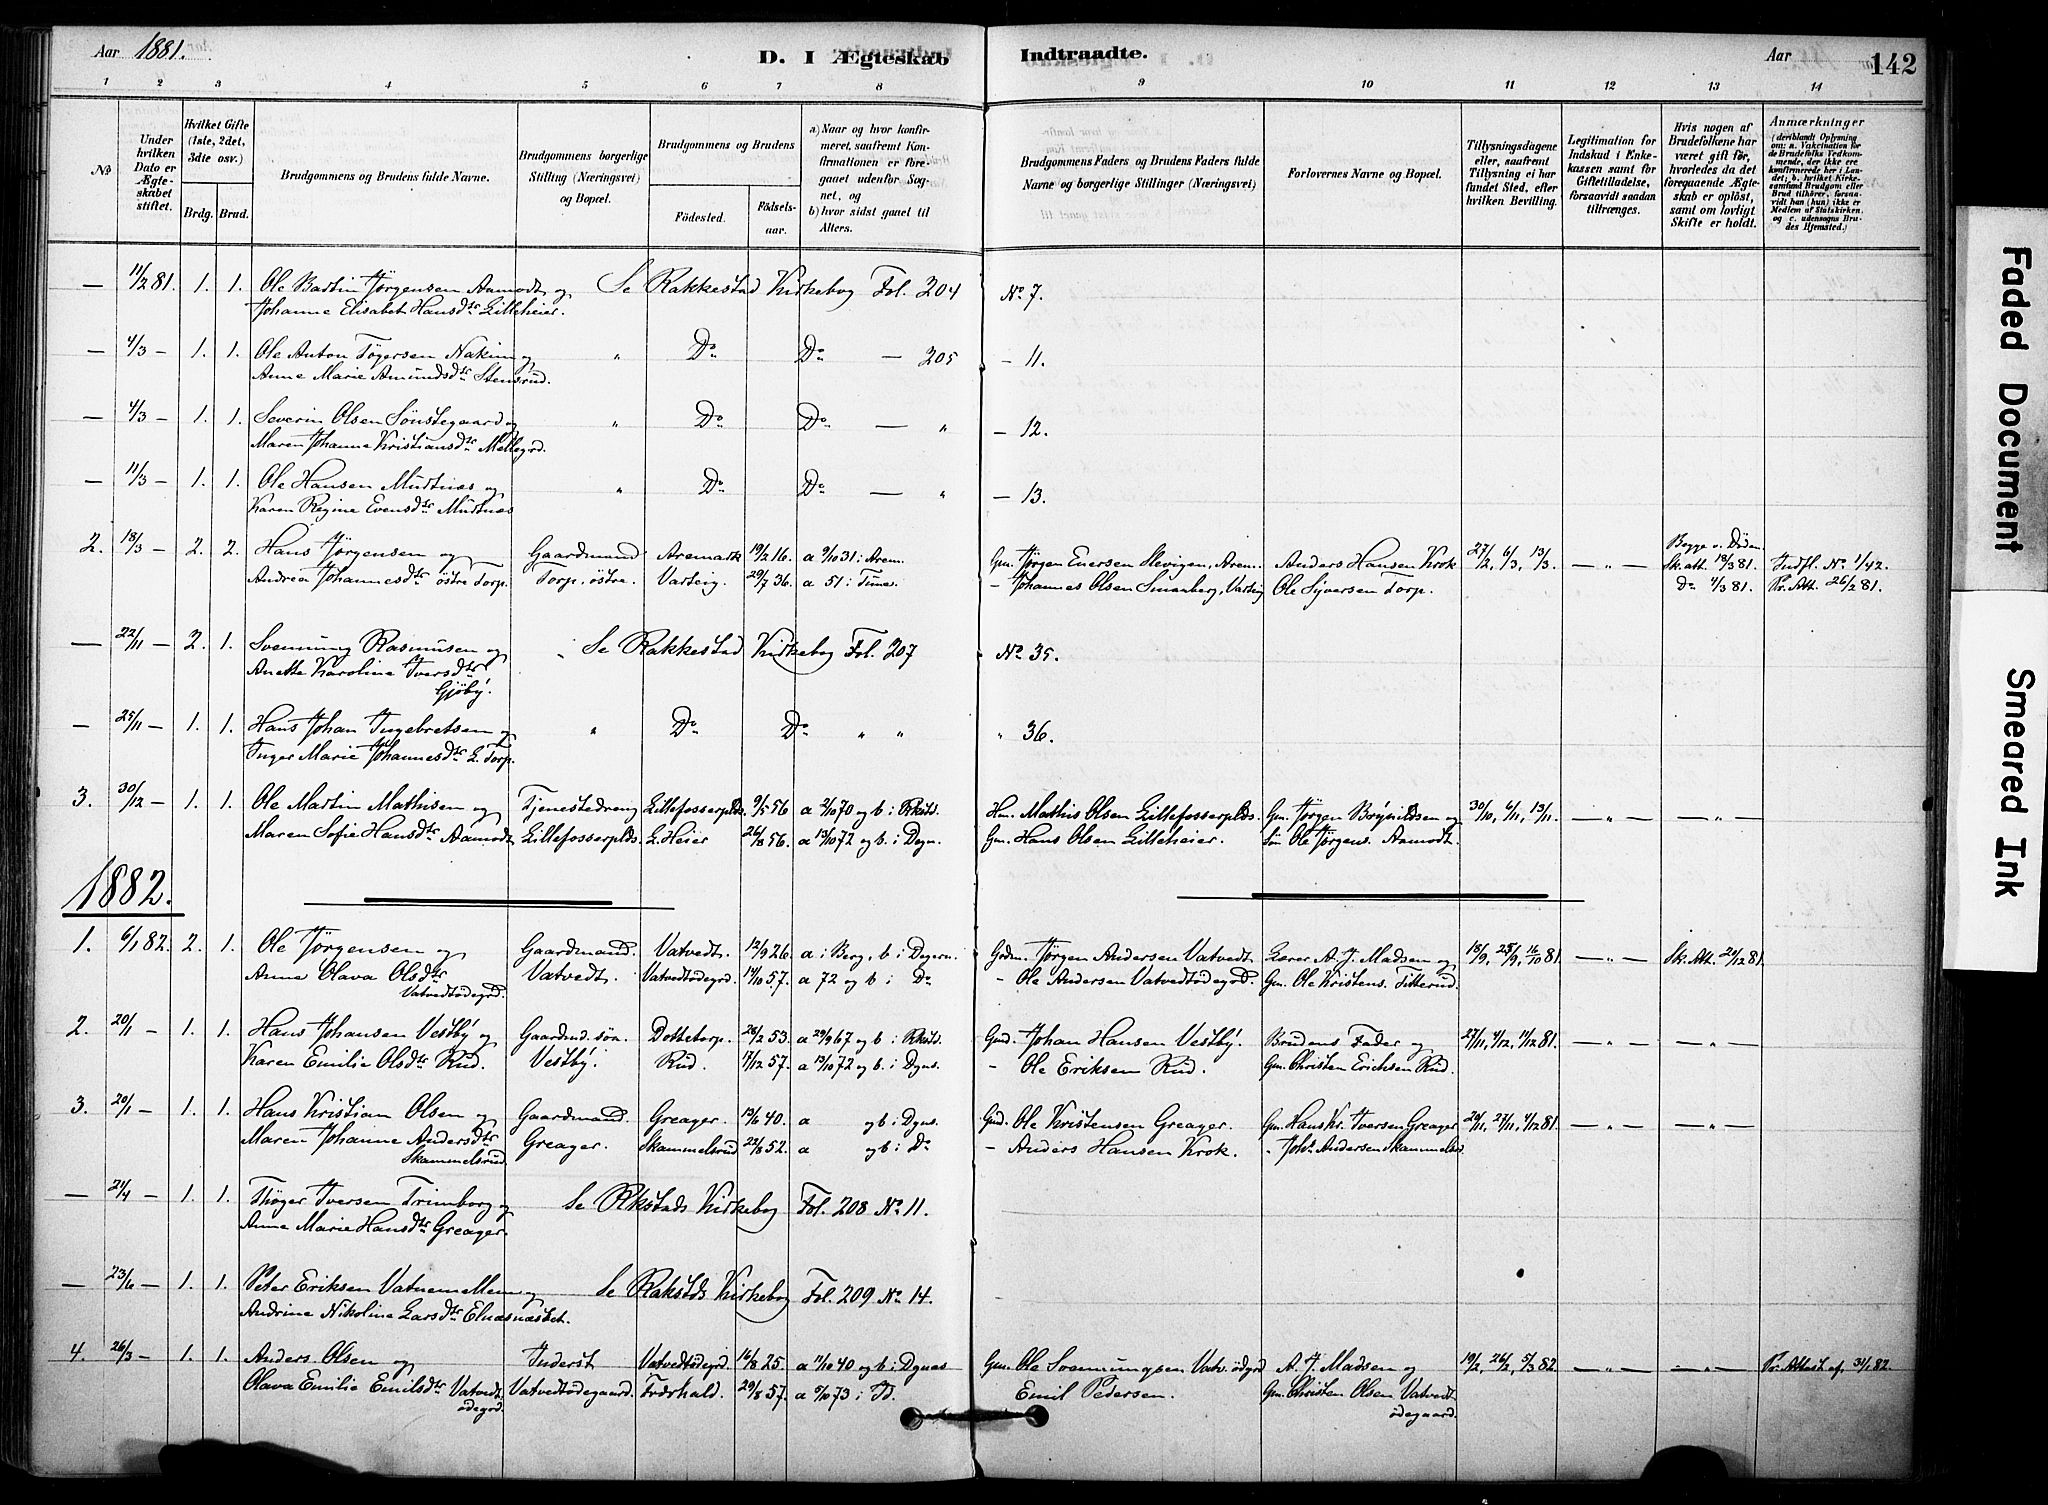 Aar 1881.
D. I Ægteskab Indtraadte.
Aar
142
1 2 3 4 5 6 7 8 9 10 11 12 13 14
No
Under hvilken Dato er Ægteskabet stiftet.
Hvilket Gifte (1ste, 2det, 3dte osv.)
Brdg. Brud.
Brudgommens og Brudens fulde Navne.
Brudgommens borgerlige Stilling (Næringsvei) og Bopæl.
Brudgommens og Brudens
Födested. Födselsaar.
a) Naar og hvor konfirmeret, saafremt Konfirmationen er foregaaet udenfor Sognet, og
b) hvor sidst gaaet til Alters.
Brudgommens Faders og Brudens Faders fulde Navne og borgerlige Stillinger (Næringsvei)
Forlovernes Navne og Bopæl.
Tillysningsdagene eller, saafremt Tillysning ei har fundet Sted, efter hvilken Bevilling.
Legitimation for Indskud i Enkekassen samt for Giftetilladelse, forsaavidt saadan tiltrænges.
Hvis nogen af Brudefolkene har været gift för, hvorledes da det foregaaende Ægteskab er oplöst, samt om lovligt Skifte er holdt.
Anmærkninger (deriblandt Oplysning om: a. Vakcination for de Brudefolks Vedkommende, der ikke ere konfirmerede her i Landet; b. hvilket Kirkesamfund Brudgom eller Brud tilhörer, forsaavidt han (hun) ikke er Medlem af Statskirken, og c. udensogns Brudes Hjemsted.)
— 11/2 81. 1. 1. Ole Bastin Jørgensen Aamodt og Se Rakkestad Kirkebog Fol. 204 No 7.
Johanne Elisabet Hansdtr Lilleheier.
— 4/3 — 1. 1. Ole Anton Tøgersen Nakim og " Do Do — 205 — 11.
Anne Marie Amundsdtr Stensrud.
— 4/3 — 1. 1. Severin Olsen Sönstegaard og " Do Do — " — 12.
Maren Johanne Kristiansdtr Mellegrd.
— 11/3 — 1. 1. Ole Hansen Mudtnæs og " Do Do — " — 13.
Karen Regine Evensdtr Mudtnæs
2. 18/3 — 2. 2. Hans Jörgensen og Gaardmand Aremark 19/2 16. a 9/10 31 i Arem. Gm. Jörgen Enersen Slevigen, Arem. Anders Hansen Krok 27/2, 6/3, 13/3. — " — Begge v. Döden Sk. att. 18/3 81. Indfl. No 1/42.
Andrea Johannesdtr östre Torp. Torp, östre. Varteig. 29/7 36. a 51 i Tune. — Johannes Olsen Smaaberg, Varteig Ole Syversen Torp. Do 4/3 81. Pr. Att. 26/2 81.
— 22/11 — 2. 1. Svennung Rasmusen og Se Rakkestad Kirkebog Fol. 207 No 35.
Anette Karoline Iversdtr
Gjöby.
— 25/11 — 1. 1. Hans Johan Ingebretsen og " Do Do " " " 36.
Inger Marie Johannesdtr L. Torp.
3. 30/12 — 1. 1. Ole Martin Mathisen og Tjenestedreng Lillefosserplds. 9/5 56 a 2/10 70 og b i Rkstd. Hm. Mathis Olsen Lillefosserplds. Gm. Jörgen Böynildsen og 30/10, 6/11, 13/11. — " — — " —
Maren Sofie Hansdtr Aamodt Lillefosserplds. L. Heier 26/8 56. a 13/10 72 og b. i Degn. Gm. Hans Olsen Lilleheier. sön Ole Jörgens. Aamodt.
1882.
1. 6/1 82. 2. 1. Ole Jörgensen og Gaardmand. Vatvedt. 12/9 26. a i Berg, b i Degern. Gdm. Jörgen Andersen Vatvedt Lærer A. J. Madsen og 18/9, 25/9, 16/10 81 — " — Sk. Att. 20/12 81.
Anne Olava Olsdtr Vatvedt. Vatvedtödegrd. 14/10 57. a 72 og b i Do — Ole Andersen Vatvedtödegrd. Gm. Ole Kristens. Titterud.
Vatvedtödegrd.
2. 20/1 — 1. 1. Hans Johansen Vestby og Gaardmd. sön. Dottetorp. 26/2 53. a 29/9 67 og b i Rkstd. Gmd. Johan Hansen Vestby. Brudens Fader og 27/11, 4/12, 11/12 81. — " — — " —
Karen Emilie Olsdtr Rud. Vestby. Rud. 7/12 57. a 13/10 72 og b. i Dgns. — Ole Eriksen Rud. Gm. Christen Erichsen Rud.
3. 20/1 — 1. 1. Hans Kristian Olsen og Gaardmand Greager. 13/6 40. a og b i Dgns. Gmd. Ole Kristensen Greager. Gm. Hans Kr. Iversen Greager 20/11, 27/11, 4/12 81. — " — — " —
Maren Johanne Andersdtr Greager. Skammelsrud 22/8 52. a og b i Do — Anders Hansen Krok. " Johs Andersen Skammelsrd
Skammelsrud.
— 21/4 — 1. 1. Thöger Iversen Trimborg og Se Rkstads Kirkebog Fol. 208 No 11.
Anne Marie Hansdtr Greager.
— 23/6 — 1. 1. Peter Eriksen Vatnemellem og Se Rakstds Kirkebog Fol. 209 No 14.
Andrine Nikoline Larsdtr Elnæsnæsset.
4. 26/3 — 1. 1. Anders Olsen og Inderst Vatvedtödegrd 16/8 25. a 11/10 40 og b i Dgnes Gm. Ole Svennungsen Vatv. ödegrd A. J. Madsen og 19/2, 26/2, 5/3 82 — " — — " — Pr. Attest af 31/1 82.
Olava Emilie Emilsdtr Vatvedt Vatvedtödegaard. Fredrkshald. 29/8 57. a 5/10 73 i Id. Emil Pedersen. Gm. Christen Olsen Vatvedt
ödegrd. ödegaard.
Faded Document
Smeared Ink